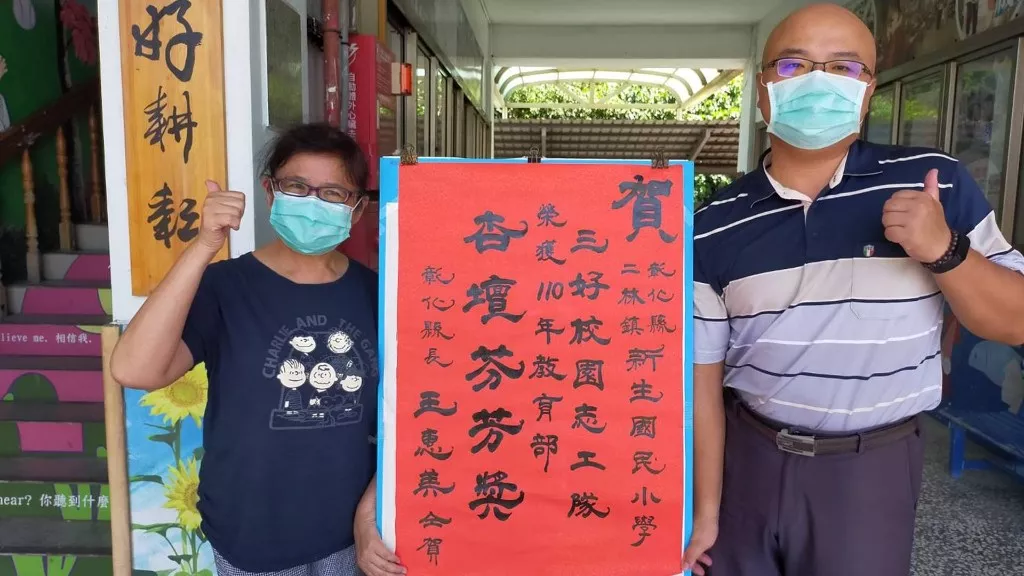 好耕耘
賀
彰化縣
二林鎮
新生國民小學
三好校園志工隊
榮獲110年教育部
杏壇芬芳獎
彰化縣長 王惠美 仝賀
CHARLIE AND THE GANG
elieve me. 相信我.
hear? 你聽到什麼